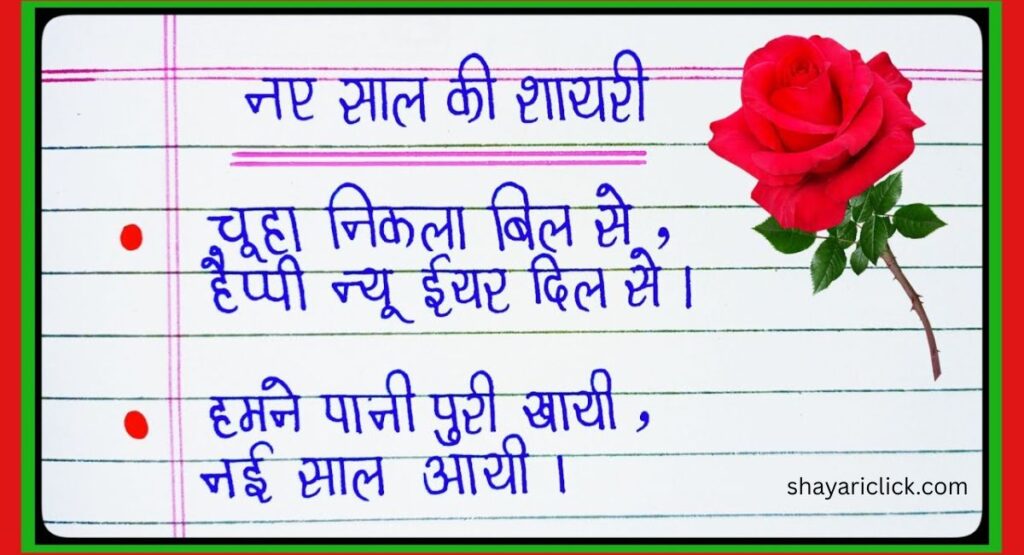 नए साल की शायरी
चूहा निकला बिल से,
हैप्पी न्यू ईयर दिल से।
हमने पानी पुरी खायी,
नई साल आयी।
shayariclick.com